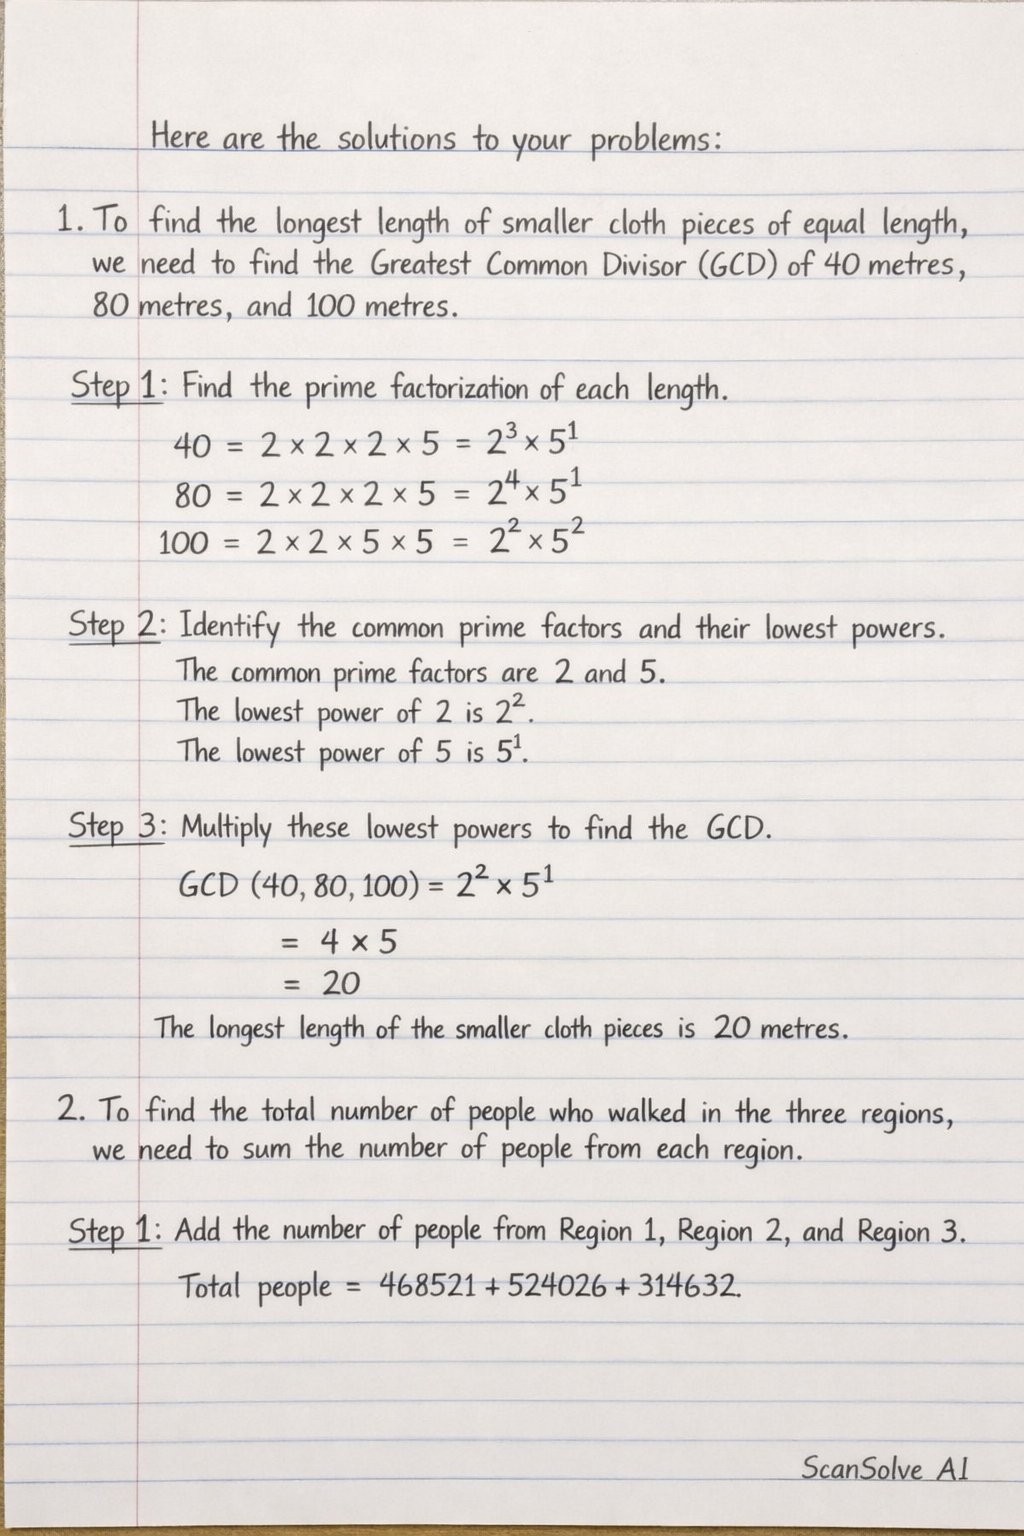 Here are the solutions to your problems:
1. To find the longest length of smaller cloth pieces of equal length,
we need to find the Greatest Common Divisor (GCD) of 40 metres,
80 metres, and 100 metres.
Step 1: Find the prime factorization of each length.
40 = 2 × 2 × 2 × 5 = 2³ × 5¹
80 = 2 × 2 × 2 × 5 = 2⁴ × 5¹
100 = 2 × 2 × 5 × 5 = 2² × 5²
Step 2: Identify the common prime factors and their lowest powers.
The common prime factors are 2 and 5.
The lowest power of 2 is 2².
The lowest power of 5 is 5¹.
Step 3: Multiply these lowest powers to find the GCD.
GCD (40, 80, 100) = 2² × 5¹
= 4 × 5
= 20
The longest length of the smaller cloth pieces is 20 metres.
2. To find the total number of people who walked in the three regions,
we need to sum the number of people from each region.
Step 1: Add the number of people from Region 1, Region 2, and Region 3.
Total people = 468521 + 524026 + 314632.
ScanSolve AI